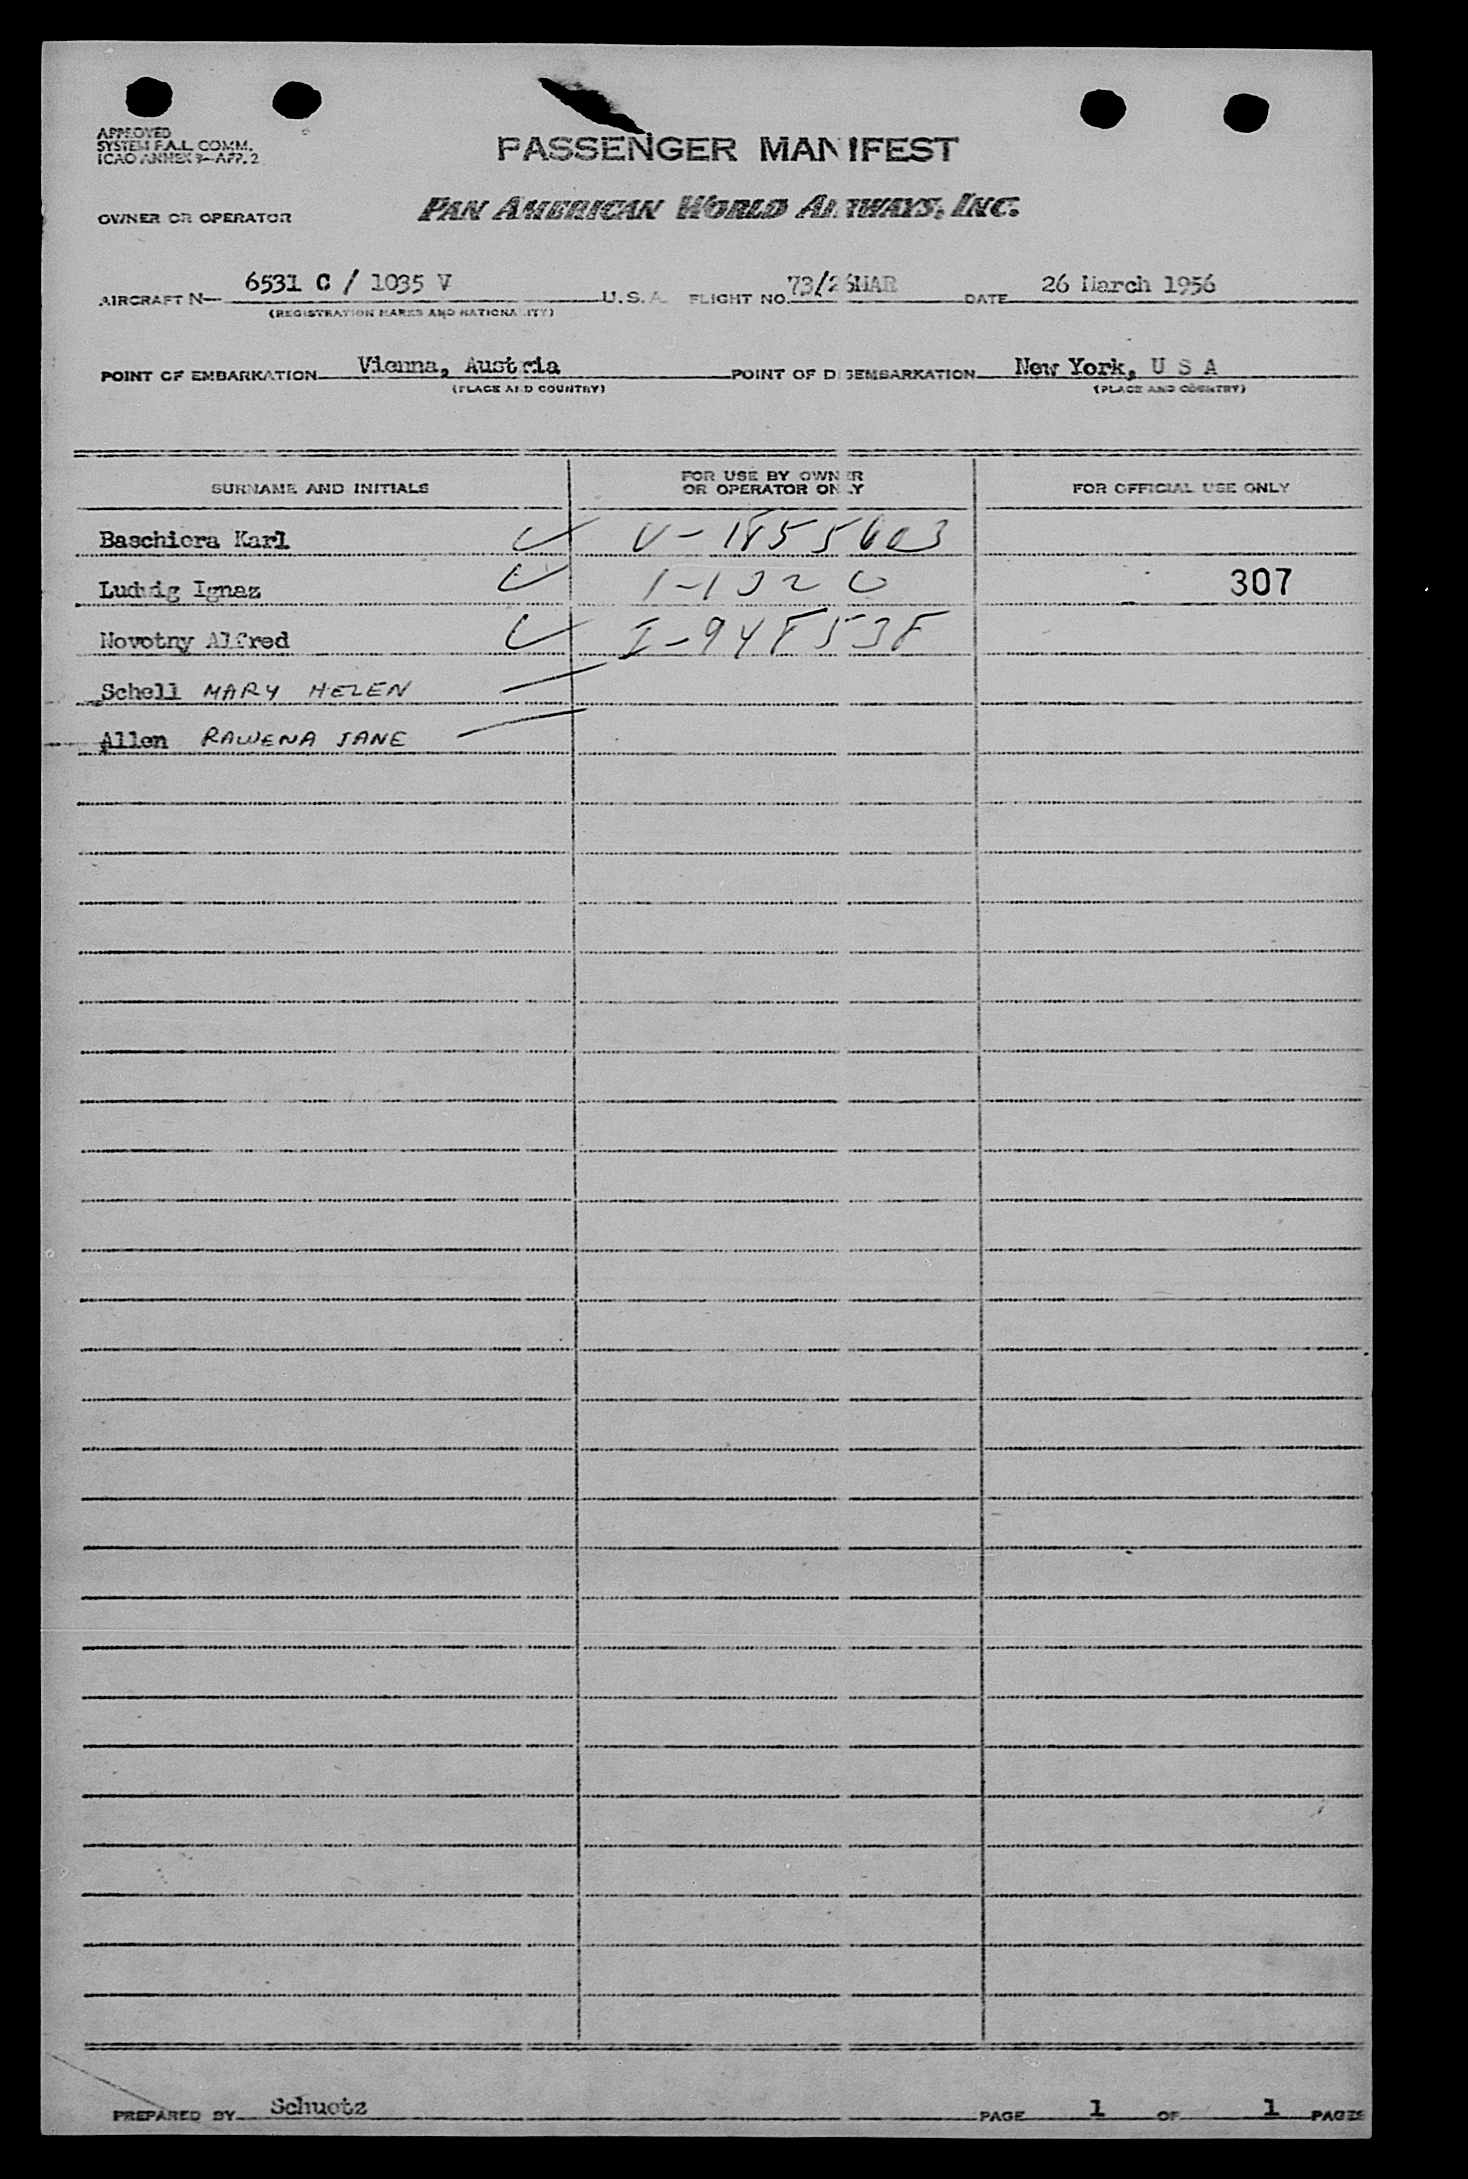 APPROVED
SYSTEM F.A.L. COMM.
ICAO ANNEX 9—APP. 2
PASSENGER MANIFEST
OWNER OR OPERATOR PAN AMERICAN WORLD AIRWAYS, INC.
AIRCRAFT N— 6531 C / 1035 V U.S.A. FLIGHT NO. 73/26MAR DATE 26 March 1956
(REGISTRATION MARKS AND NATIONALITY)
POINT OF EMBARKATION Vienna, Austria POINT OF DISEMBARKATION New York, U S A
(PLACE AND COUNTRY) (PLACE AND COUNTRY)
SURNAME AND INITIALS FOR USE BY OWNER OR OPERATOR ONLY FOR OFFICIAL USE ONLY
Baschiera Karl V-1855603
Ludwig Ignaz 1-1320 307
Novotny Alfred I-948538
Schell MARY HELEN
Allen RAWENA JANE
PREPARED BY Schuetz PAGE 1 OF 1 PAGES